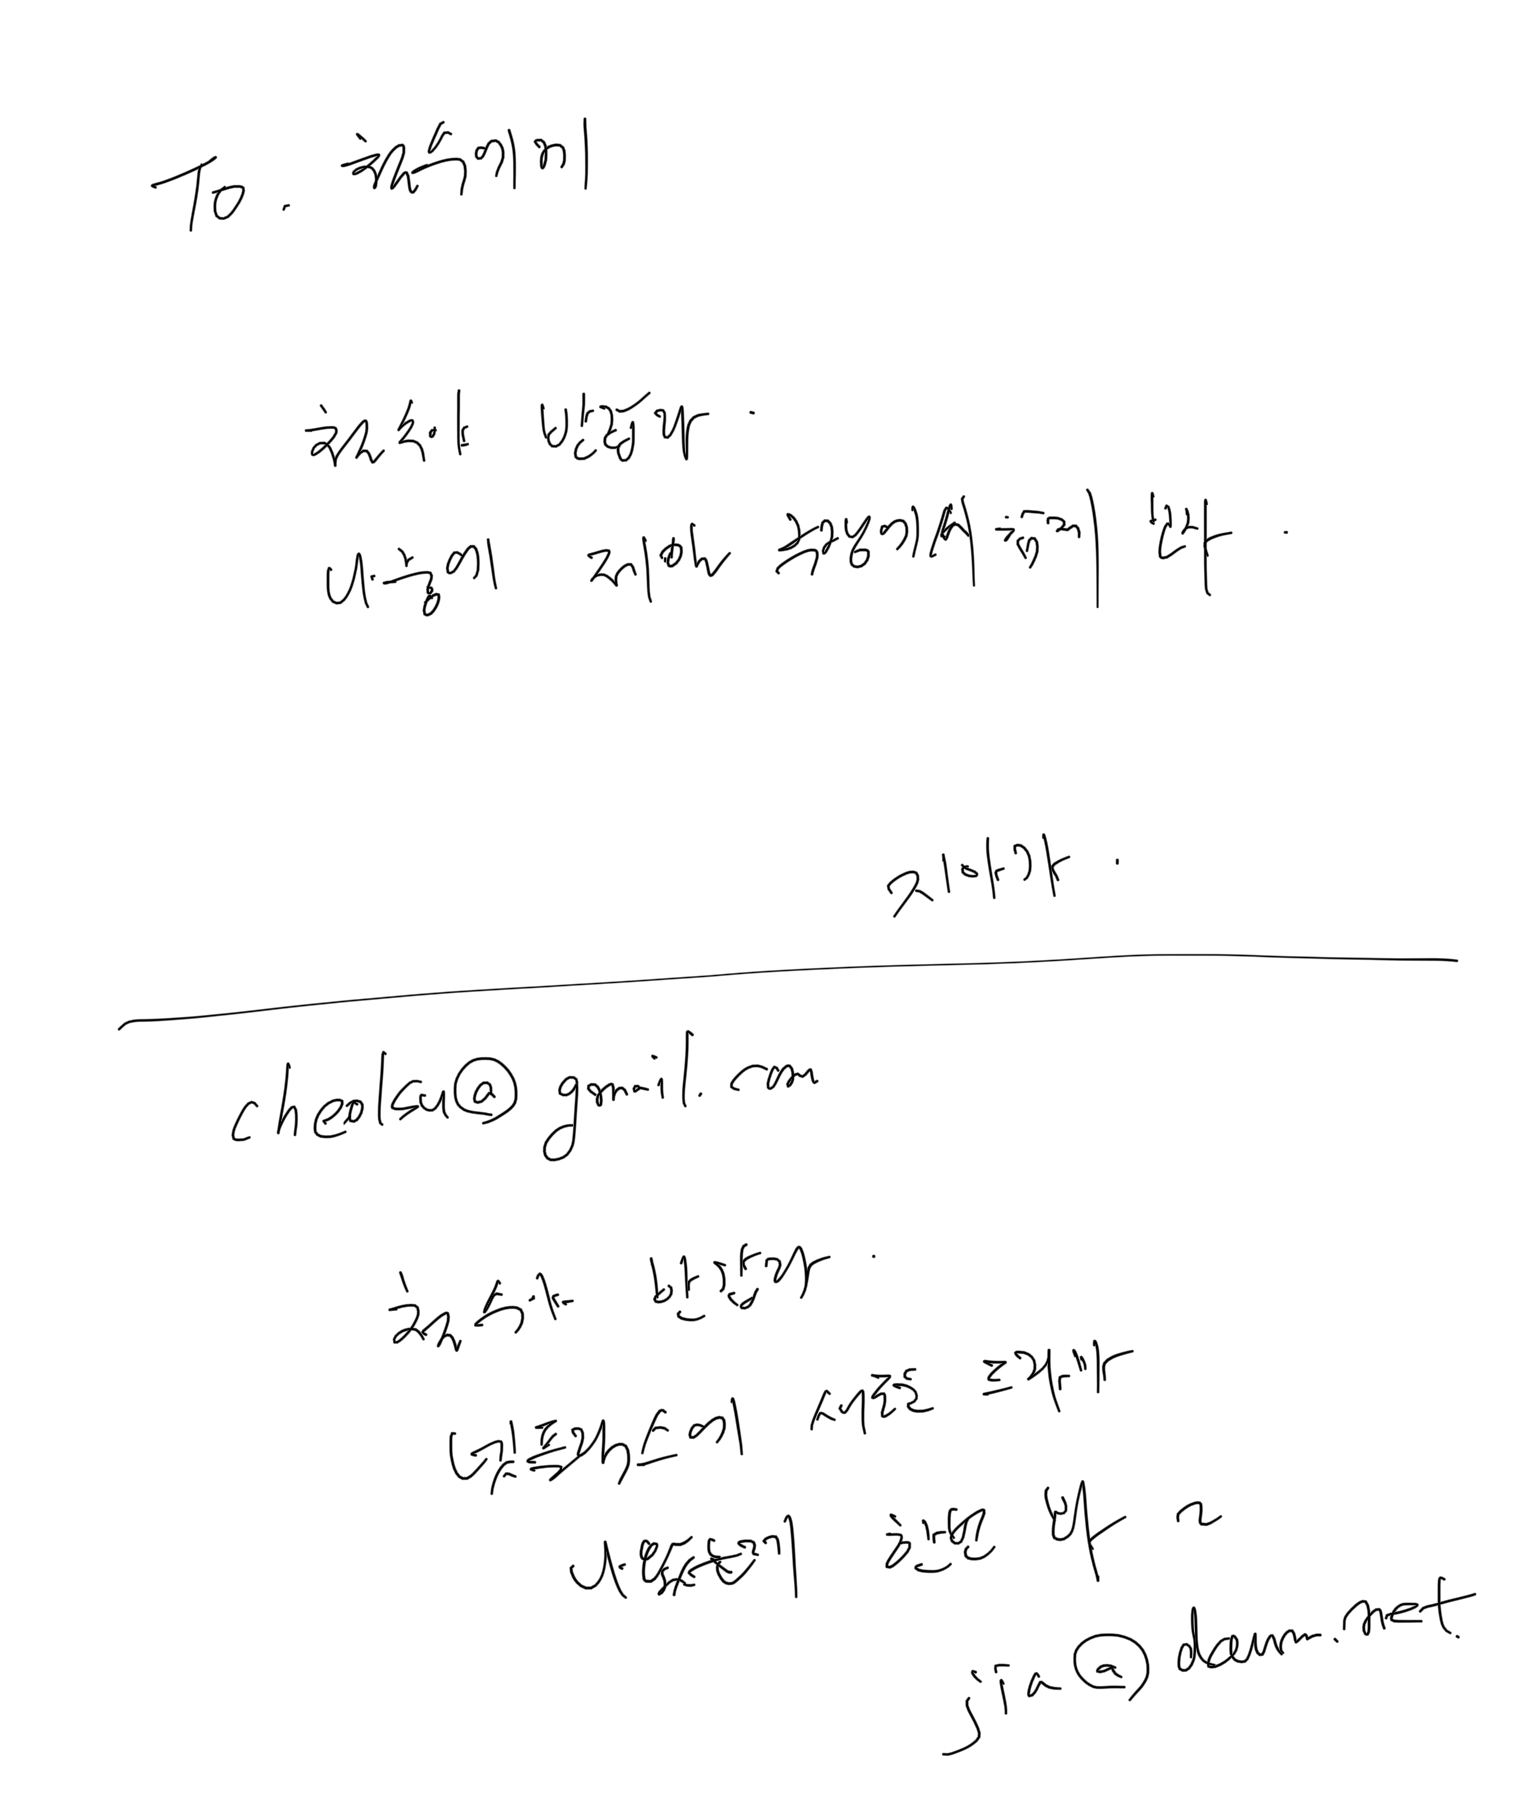 To. 철수에게
철수야 반갑다.
나중에 제한 극장에서 함께 보자.
지아가.
cheolsu@gmail.com
철수야 반갑다.
넷플릭스에 새로운 드라마
나왔는데 한번 봐 ~
jia@daum.net.